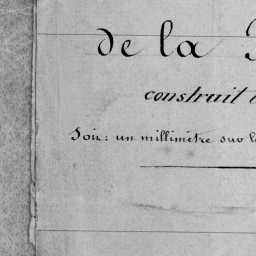 de la
construit
Soit: un millimètre sur